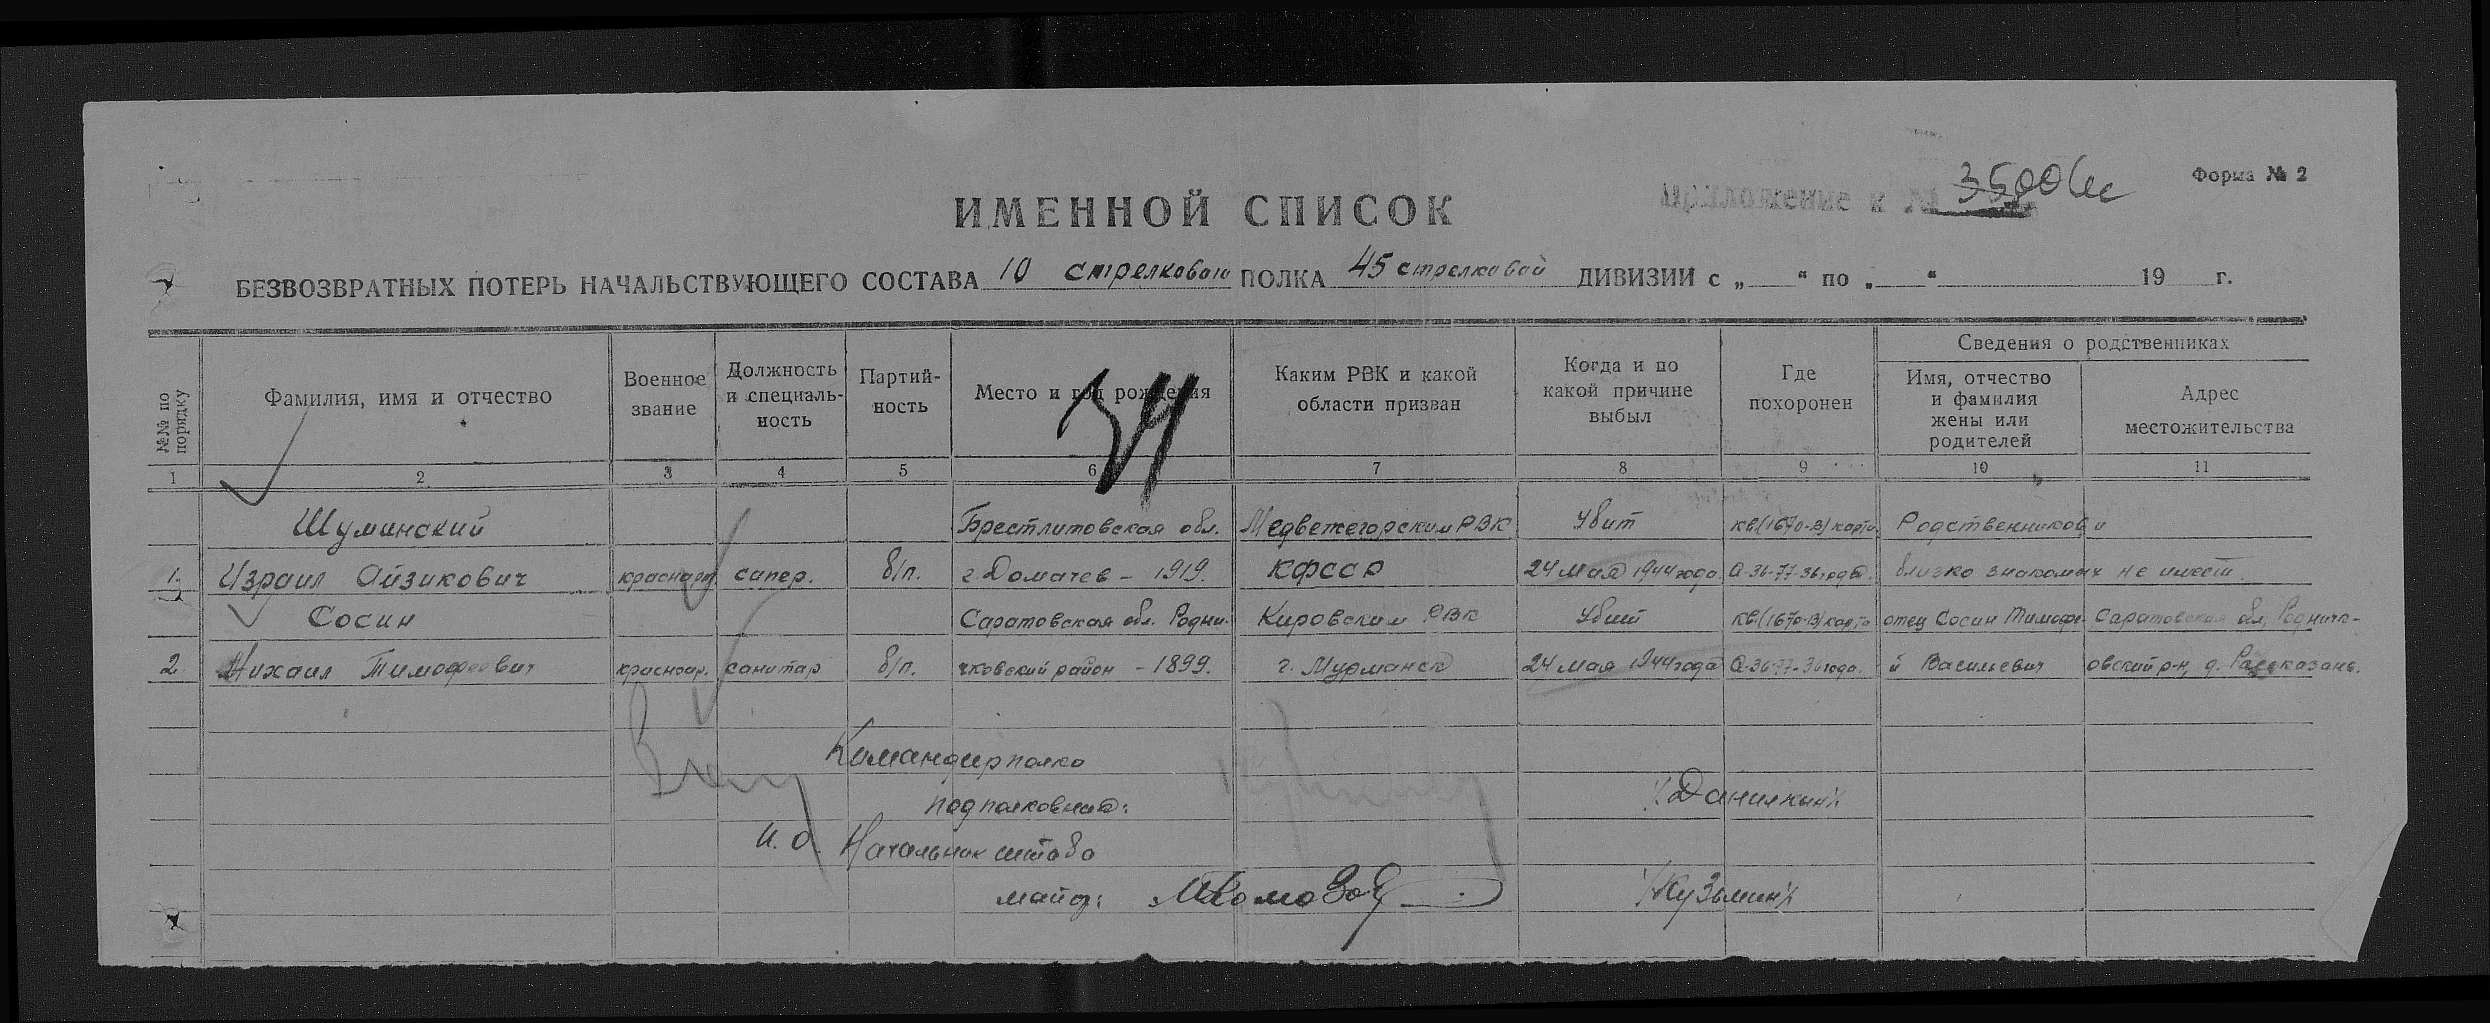 Форма № 2
Приложение к № 3500 6с
ИМЕННОЙ СПИСОК
БЕЗВОЗВРАТНЫХ ПОТЕРЬ НАЧАЛЬСТВУЮЩЕГО СОСТАВА 10 стрелкового ПОЛКА 45 стрелковой ДИВИЗИИ с „ “ по „ “ 19 г.
№№ по порядку
Фамилия, имя и отчество
Военное звание
Должность и специальность
Партийность
Место и год рождения
Каким РВК и какой области призван
Когда и по какой причине выбыл
Где похоронен
Сведения о родственниках
Имя, отчество и фамилия жены или родителей
Адрес местожительства
34
1 2 3 4 5 6 7 8 9 10 11
Шуминский Брестлитовская обл. Медвежегорским РВК Убит кв.(1670-В) карта Родственников и
1. Израил Айзикович красноар. сапер. б/п. г. Домачев - 1919. КФССР 24 мая 1944 года О-36-77-36 года. близко знакомых не имеет.
Сосин Саратовская обл. Родни- Кировским РВК Убит кв.(1670-В) карта отец Сосин Тимофе- Саратовская обл, Роднич-
2. Михаил Тимофеевич красноар. санитар б/п. чковский район - 1899. г. Мурманск 24 мая 1944 года О-36-77-36 года. й Васильевич овский р-н, д. Рассказань.
Командир полка
подполковник: /Данилкин/
И. о. Начальник штаба
майор: /Кузьмин/